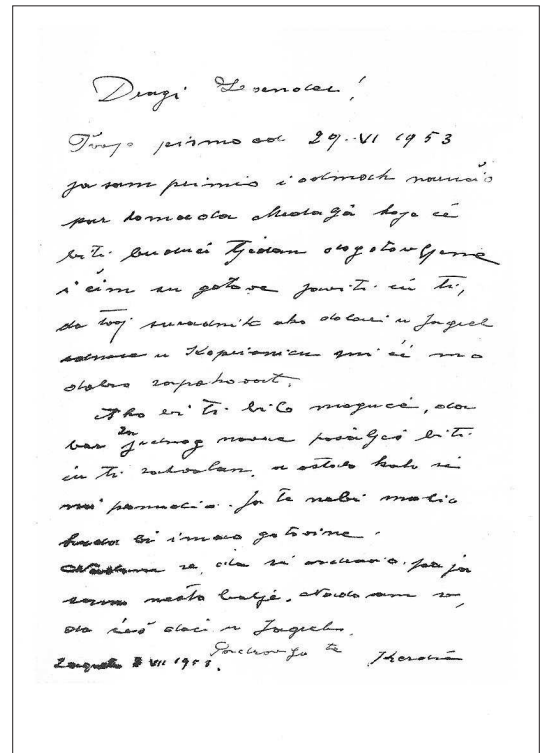 Dragi Zvendec!
Tvoje pismo od 29-VI 1953
ja sam primio i odmah naručio
par komada Medalja koje će
biti budući tjedan dogotovljene
i čim su gotove javiti ću ti,
da tvoj suradnik ako dolazi u Zagreb
odnosno u Koprivnicu mi će mo
dobro zapakovati.
Ako bi ti bilo moguće, da
bar za jednog novca pošalješ biti
ću ti zahvalan, a ostalo kako si
mi ponudio. Ja te nebi molio
kada bi imao gotovine.
Nadam se, da si ozdravio, pa ja
samo nešto bolje. Nadam se,
da ćeš doći u Zagreb.
Pozdravlja te
Zagreb 3 VII 1953.